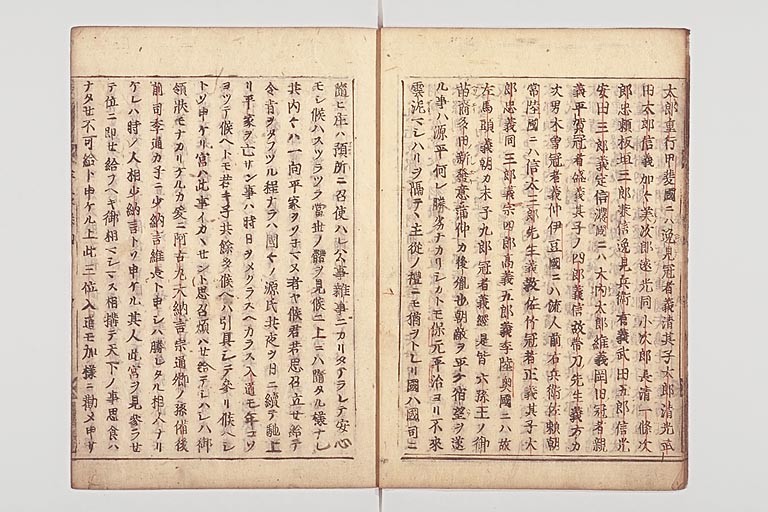 太郎重行甲斐國ニハ逸見冠者義清其子太郎清光武
田太郎信義加々美次郎遠光同小次郎長清一條次
郎忠頼板垣三郎兼信逸見兵衛有義武田五郎信光
安田三郎義定信濃國ニハ大内太郎維義岡田冠者親
義平賀冠者盛義其子ノ四郎義信故帯刀先生義方カ
次男木曽冠者義仲伊豆國ニハ流人前右兵衛佐頼朝
常陸國ニハ信太三郎先生義教佐竹冠者正義其子太
郎忠義同三郎義宗四郎高義五郎義季陸奥國ニハ故
左馬頭義朝カ末子九郎冠者義経是皆六孫王ノ御
苗裔多田新發意満仲カ後胤也朝敵ヲ平ケ宿望ヲ遂
ル事ハ源平何レ勝劣ナカリシカトモ保元平治ヨリ不來
雲泥マシハリヲ隔テヽ主従ノ禮ニモ猶ヲトレリ國ハ國司ニ
随ヒ庄ハ預所ニ召使ハレ公事雑事ニカリタテラレテ安心
モシ候ハスツラツラ當世ノ體ヲ見候ニ上ニハ随タル様ナレ
共内々ハ一向平家ヲソネマヌ者ヤ候君若思召立せ給テ
令旨ヲタフツル程ナラハ國々ノ源氏共夜ヲ日ニ續テ馳上
リ平家ヲ亡サン事ハ時日ヲメクラスヘカラス入道モ年コソ
ヨツテ候ヘトモ若キ子共餘多候ヘハ引具シテ參リ候ヘシ
トソ申ケリ宮ハ此事イカヽせント思召煩ハせ給テシハシハ御
領状モナカリケルカ爰ニ阿古丸大納言宗通卿ノ孫備後
前司季通カ子ニ少納言維長ト申シハ勝レタル相人ナリ
ケレハ時ノ人相少納言トソ申ケル其人此宮ヲ見參ラせ
テ位ニ即せ給フヘキ御相マシマス相構テ天下ノ事思食ハ
ナタせ不可給ト申ケル上此三位入道モ加様ニ勧メ申サ